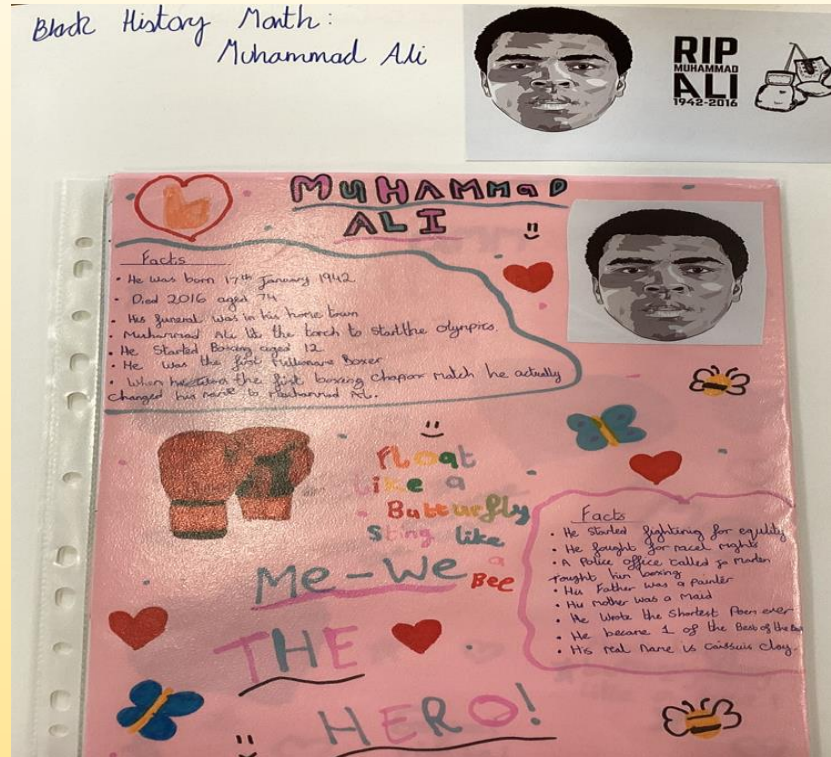 Black History Month:
Muhammad Ali
RIP
MUHAMMAD
ALI
1942-2016
MUHAMMaD
ALI
Facts
• He was born 17th January 1942
• Died 2016 aged 74
• His funeral was in his home town
• Muhammad Ali lit the torch to start the olympics.
• He Started Boxing aged 12
• He was the first Millionaire Boxer
• When he the first boxing match he actually
changed his name to
Float
like a
Butturfly
Sting like
a
Bee
Me-We
THE
HERO!
Facts
• He started fightining for equility
• He fought for racel rights
• A Police office called Jo Marten
taught him boxing
• His Father was a painter
• His Mother was a Maid
• He wrote the shortest Poem ever
• He became 1 of the Best of the
• His real name is clay.